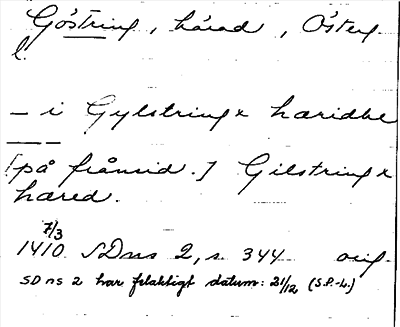 Göstring, härad, Österg.
l.
— i Gylstringx hæridhe
— —
[på frånsid.] Gilstringx
hæred.
7/3
1410 SDns 2, s. 344 orig.
SDns 2 har felaktigt datum: 21/12 (S.P.-L.)